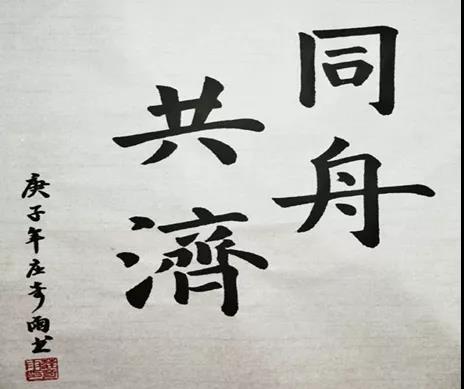 同舟
共濟
庚子年庄奇雨书